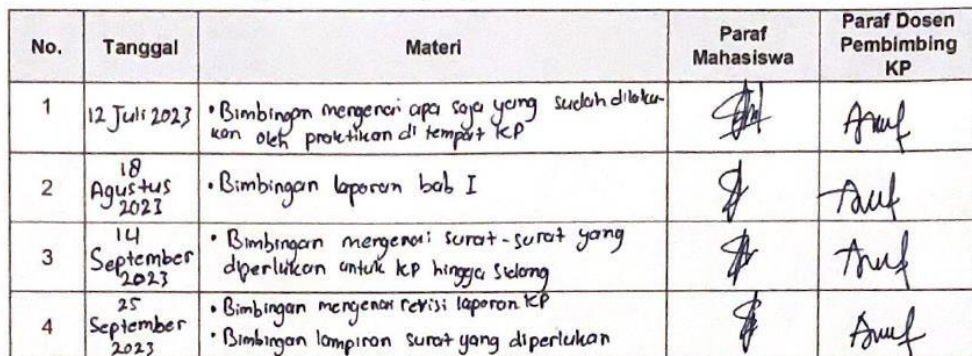 No. Tanggal Materi Paraf Mahasiswa Paraf Dosen Pembimbing KP
1 12 Juli 2023 • Bimbingan mengenai apa saja yang sudah dilaku-
kan oleh praktikan di tempat KP
2 18 Agustus 2023 • Bimbingan laporan bab I
3 14 September 2023 • Bimbingan mengenai surat-surat yang
diperlukan untuk KP hingga sidang
4 25 September 2023 • Bimbingan mengenai revisi laporan KP
• Bimbingan lampiran surat yang diperlukan